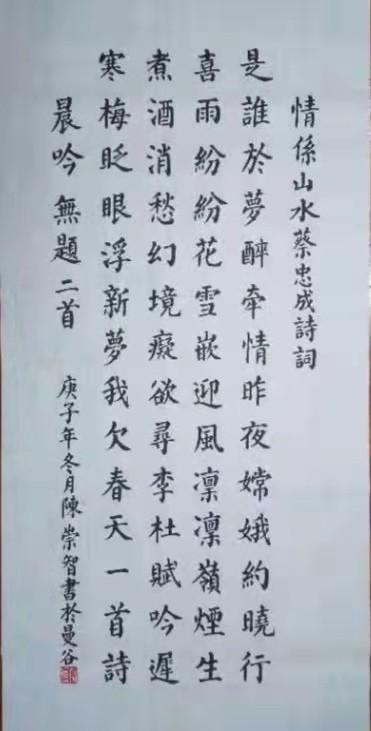 情係山水蔡忠成詩詞
是誰於夢醉牽情昨夜嫦娥約曉行
喜雨紛紛花雪嵌迎風凛凛嶺煙生
煮酒消愁幻境癡欲尋李杜賦吟遲
寒梅眨眼浮新夢我欠春天一首詩
晨吟無題二首
庚子年冬月陳崇智書於曼谷